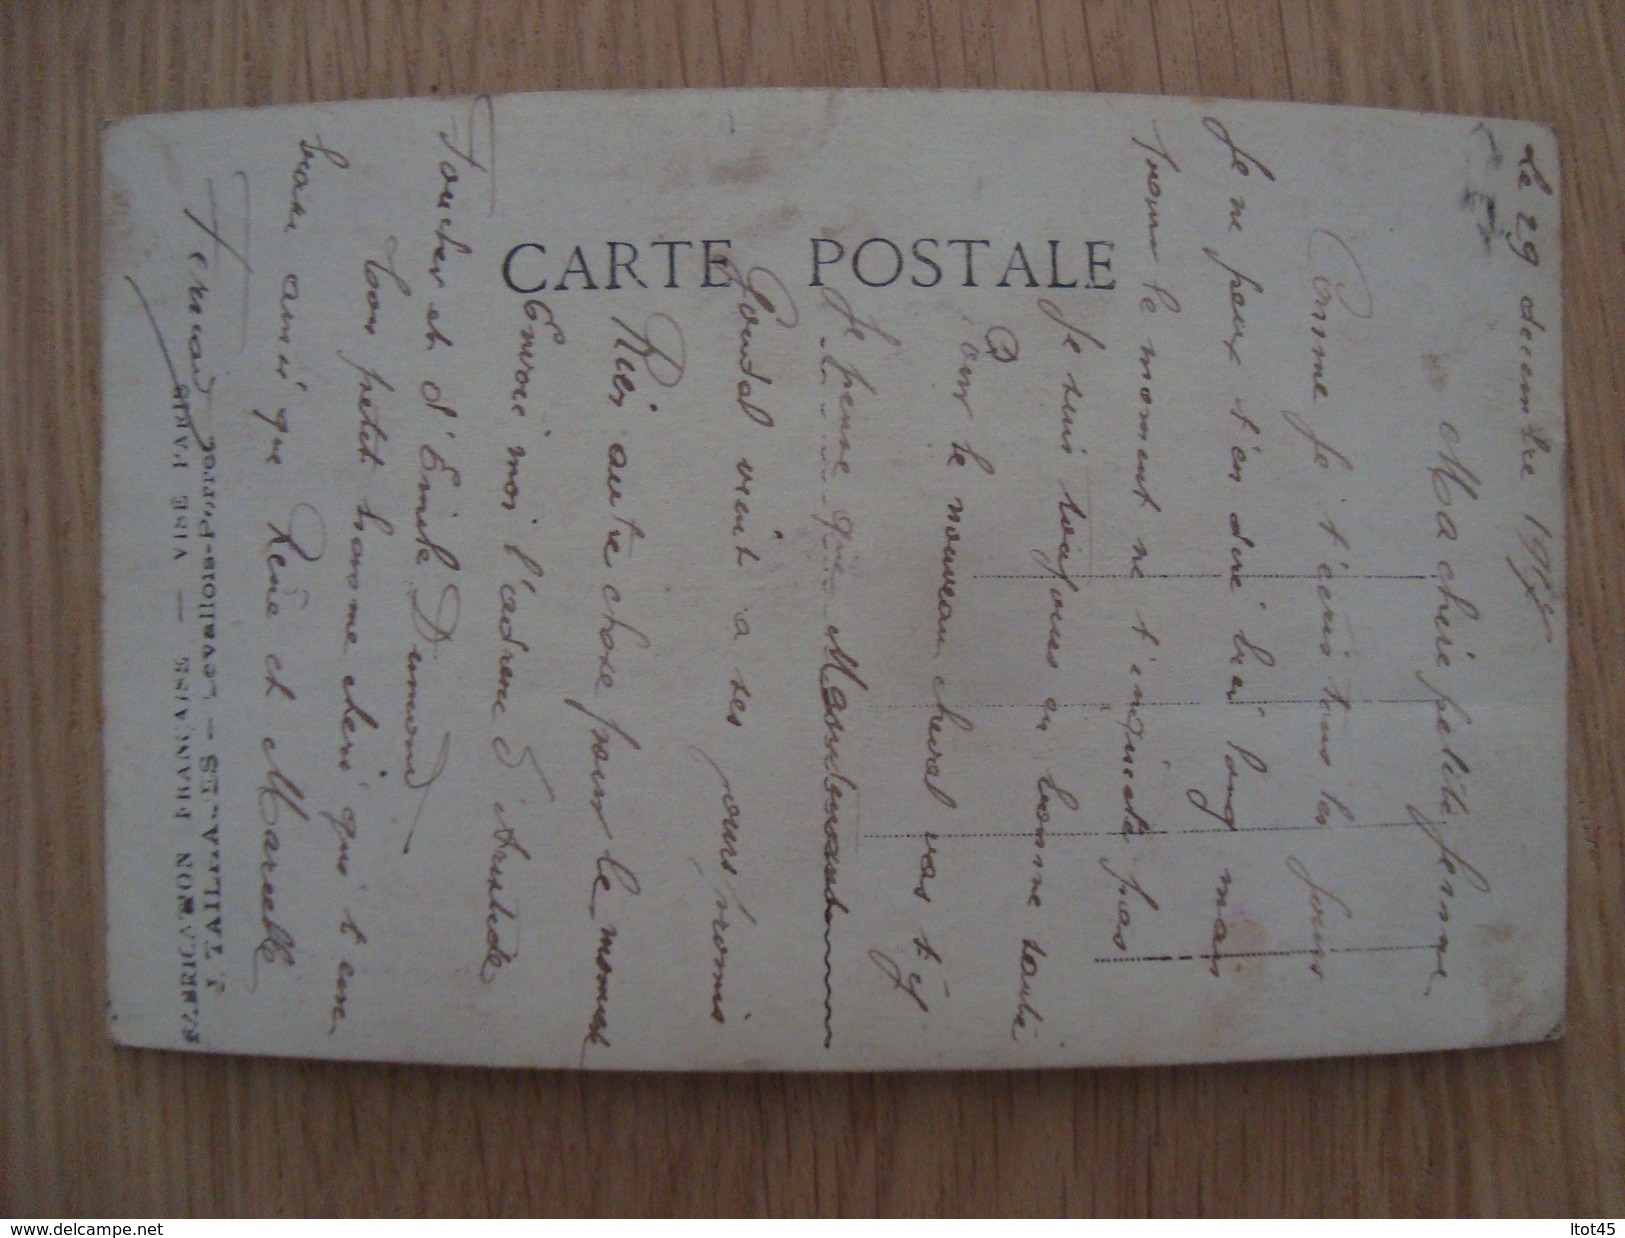 CARTE POSTALE
Le 29 décembre
Ma chère petite femme
Comme je t'écris tous les jours
Je ne peux t'en dire très long mais
pour le moment ne t'inquiete pas
Je suis toujours en bonne santé
Pour le nouveau cheval vas t'y
Je pense que
vient a ses jours promis
Rien autre chose pour le moment
Envoie moi l'adresse d'Aristide
Foucher et d'Emile Dumond
Ton petit homme cheri qui t'em
brasse ainsi que René et Marcelle
Fernand
FABRICATION FRANÇAISE — VISÉ PARIS
J. TAILLADES — Levallois-Perret
ltot45
delcampe.net